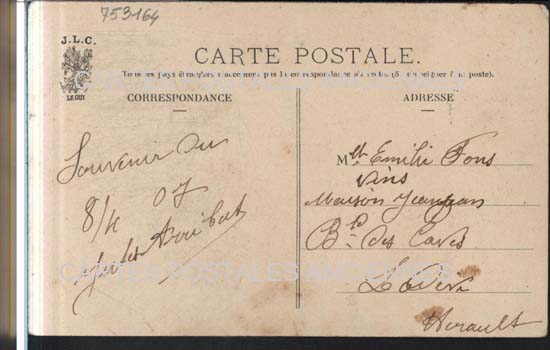 753164
J.L.C.
LE GUI
CARTE POSTALE.
Tous les pays étrangers n'acceptent pas la correspondance au recto. (Se renseigner à la poste).
CORRESPONDANCE
Souvenir du
8/4 07
Jules
ADRESSE
Mlle Emilie Fons
Vins
Maison Jeanjean
Bd des Caves
Lodève
Hérault
CARTES POSTALES ANCIENNES